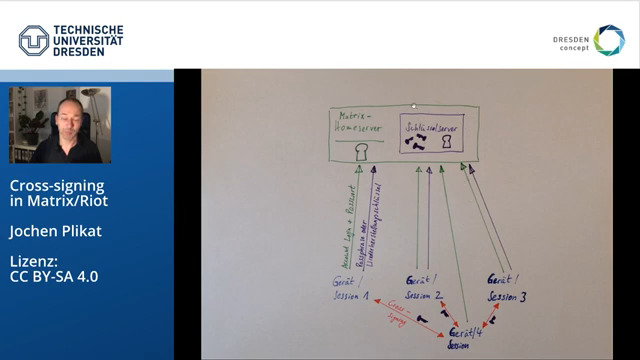 TECHNISCHE
UNIVERSITÄT
DRESDEN
DRESDEN
concept
Cross-signing
in Matrix/Riot
Jochen Plikat
Lizenz:
CC BY-SA 4.0
Matrix-
Homeserver
Schlüsselserver
Account Login + Passwort
Passphrase oder
Wiederherstellungsschlüssel
Gerät /
Session 1
Gerät /
Session 2
Gerät /
Session 3
Cross-
signing
Gerät/4
Session